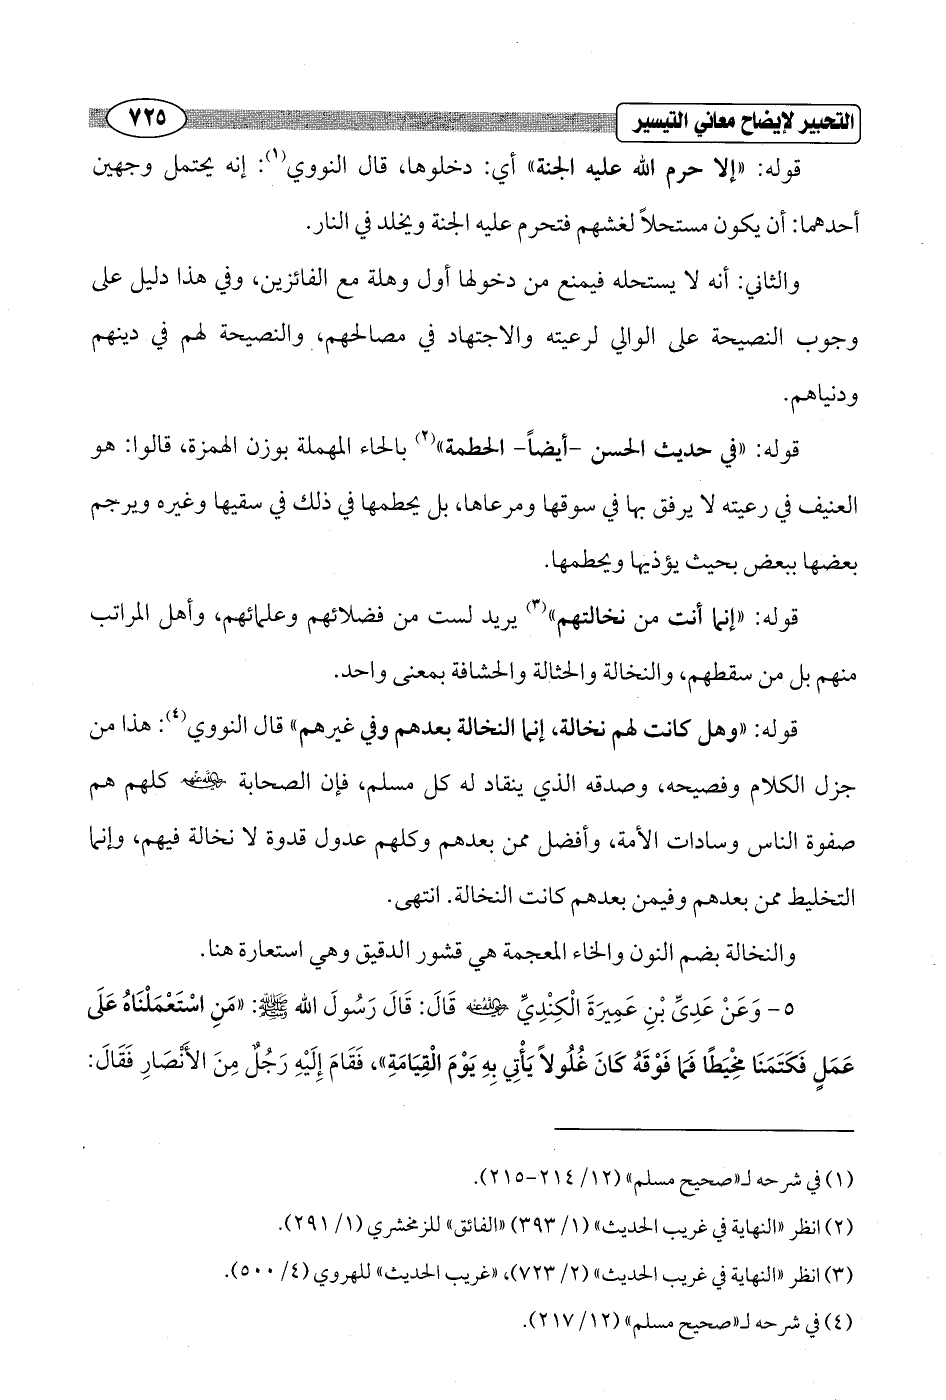 التحبير لإيضاح معاني التيسير
٧٢٥
قوله: «إلا حرم الله عليه الجنة» أي: دخلوها، قال النووي(١): إنه يحتمل وجهين
أحدهما: أن يكون مستحلاً لغشهم فتحرم عليه الجنة ويخلد في النار.
والثاني: أنه لا يستحله فيمنع من دخولها أول وهلة مع الفائزين، وفي هذا دليل على
وجوب النصيحة على الوالي لرعيته والاجتهاد في مصالحهم، والنصيحة لهم في دينهم
ودنياهم.
قوله: «في حديث الحسن -أيضاً- الحطمة»(٢) بالحاء المهملة بوزن الهمزة، قالوا: هو
العنيف في رعيته لا يرفق بها في سوقها ومرعاها، بل يحطمها في ذلك في سقيها وغيره ويرجم
بعضها ببعض بحيث يؤذيها ويحطمها.
قوله: «إنما أنت من نخالتهم»(٣) يريد لست من فضلائهم وعلمائهم، وأهل المراتب
منهم بل من سقطهم، والنخالة والحثالة والحشافة بمعنى واحد.
قوله: «وهل كانت لهم نخالة، إنما النخالة بعدهم وفي غيرهم» قال النووي(٤): هذا من
جزل الكلام وفصيحه، وصدقه الذي ينقاد له كل مسلم، فإن الصحابة رضي الله عنهم كلهم هم
صفوة الناس وسادات الأمة، وأفضل ممن بعدهم وكلهم عدول قدوة لا نخالة فيهم، وإنما
التخليط ممن بعدهم وفيمن بعدهم كانت النخالة. انتهى.
والنخالة بضم النون والخاء المعجمة هي قشور الدقيق وهي استعارة هنا.
٥- وَعَنْ عَدِيِّ بْنِ عَمِيرَةَ الْكِنْدِيِّ رضي الله عنه قَالَ: قَالَ رَسُولَ الله ﷺ: «مَنِ اسْتَعْمَلْنَاهُ عَلَى
عَمَلٍ فَكَتَمَنَا مِخْيَطًا فَمَا فَوْقَهُ كَانَ غُلُولاً يَأْتِي بِهِ يَوْمَ الْقِيَامَةِ»، فَقَامَ إِلَيْهِ رَجُلٌ مِنَ الأَنْصَارِ فَقَالَ:
(١) في شرحه لـ«صحيح مسلم» (١٢/ ٢١٤-٢١٥).
(٢) انظر «النهاية في غريب الحديث» (١/ ٣٩٣) «الفائق» للزمخشري (١/ ٢٩١).
(٣) انظر «النهاية في غريب الحديث» (٢/ ٧٢٣)، «غريب الحديث» للهروي (٤/ ٥٠٠).
(٤) في شرحه لـ«صحيح مسلم» (١٢/ ٢١٧).